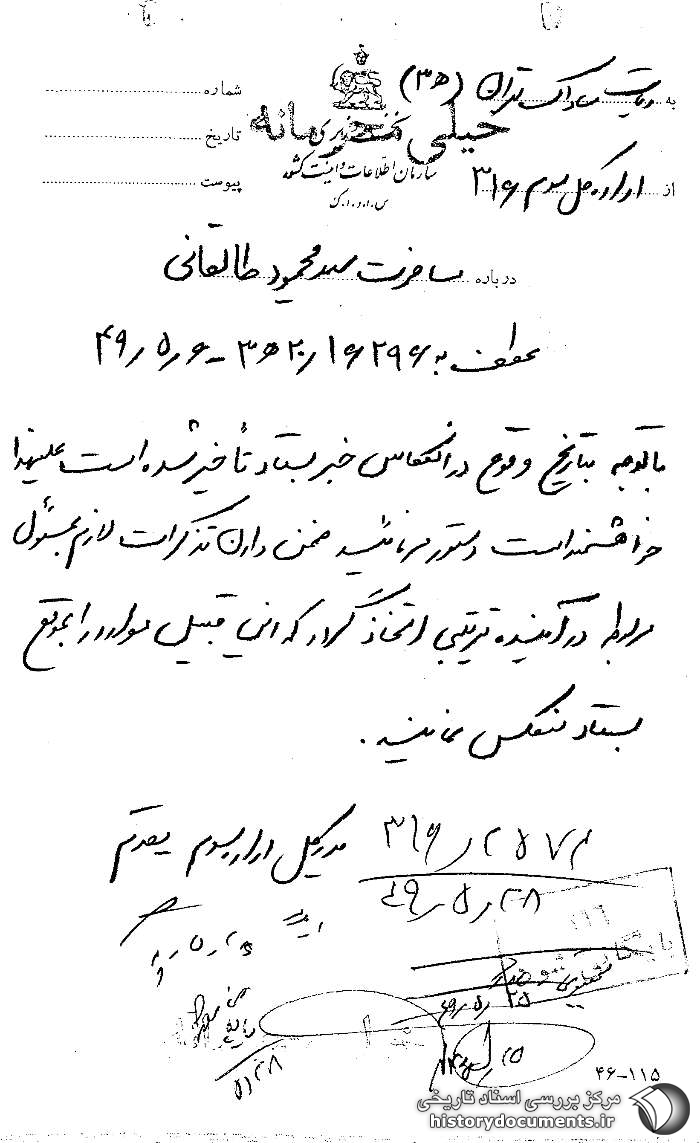 به ریاست ساواک تهران (۳ھ)
شماره
خیلی محرمانه
نخست وزیری
تاریخ
سازمان اطلاعات و امنیت کشور
س.ا.و.ا.ک
از اداره کل سوم ۳۱۶
پیوست
درباره مسافرت سید محمود طالقانی
عطف به ۱۶۲۹۶ / ۲۰ ھ ۳ - ۶ ر ۵ ر ۴۹
با توجه بتاریخ وقوع در انعکاس خبر بستاد تأخیر شده است علیهذا
خواهشمند است دستور فرمائید ضمن دادن تذکرات لازم بمسئول
مربوطه در آینده ترتیبی اتخاذ گردد که این قبیل موارد را بموقع
بستاد منعکس نمایند.
مدیر کل اداره سوم مقدم
۳۱۶
۴۹ ر ۵ ر ۲۸
بایگانی شود
۲۵
۵ ر ۲۸
۴۶-۱۱۵
مرکز بررسی اسناد تاریخی
historydocuments.ir